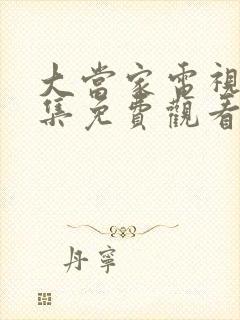 大當家電視
集免費觀看
丹寧